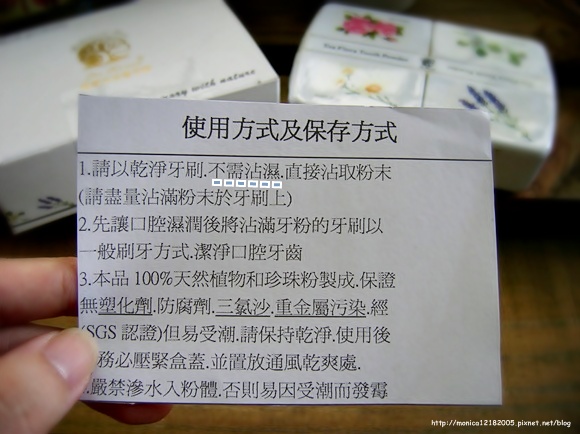 使用方式及保存方式
1.請以乾淨牙刷.不需沾濕.直接沾取粉末
(請盡量沾滿粉末於牙刷上)
2.先讓口腔濕潤後將沾滿牙粉的牙刷以
一般刷牙方式.潔淨口腔牙齒
3.本品100%天然植物和珍珠粉製成.保證
無塑化劑.防腐劑.三氯沙.重金屬污染.經
(SGS 認證)但易受潮.請保持乾淨.使用後
務必壓緊盒蓋.並置放通風乾爽處.
.嚴禁滲水入粉體.否則易因受潮而發霉
http://monica12182005.pixnet.net/blog